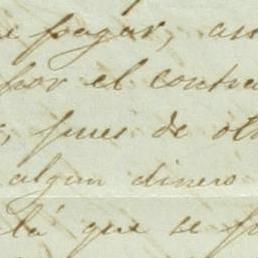 pagar, 
por el contra
, pues de otr
algun dinero
la' que se p